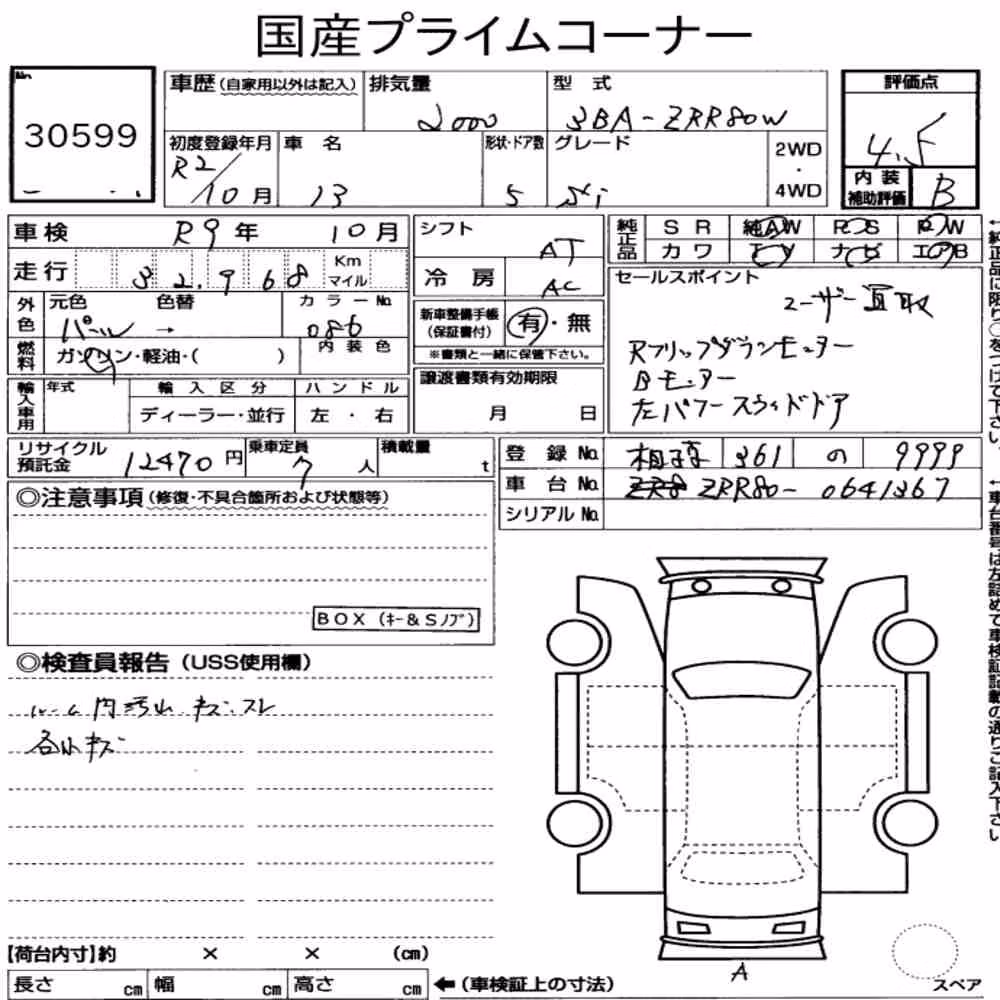 国産プライムコーナー
No.
30599
車歴(自家用以外は記入)
排気量
2000
型 式
3BA-ZRR80W
評価点
4.5
初度登録年月
R2/10月
車 名
13
形状・ドア数
5
グレード
Si
2WD
・
4WD
内装
補助評価
B
車検
R9年 10月
シフト
AT
純正品
SR 純AW PS PW
カワ TV ナビ エアB
走行
32,968
Km
マイル
冷房
AC
セールスポイント
ユーザー買取
Rフリップダウンモニター
Bモニター
左パワースライドドア
外色
元色
パール →
色替
カラーNo.
086
新車整備手帳
(保証書付)
有・無
※書類と一緒に保管下さい。
燃料
ガソリン・軽油・( )
内装色
輸入車用
年式
輸入区分
ディーラー・並行
ハンドル
左・右
譲渡書類有効期限
月 日
リサイクル
預託金
12470円
乗車定員
7人
積載量
t
登録No.
相模 361 の 9999
車台No.
ZRR80-0641367
シリアルNo.
◎注意事項(修復・不具合箇所および状態等)
BOX(キー&Sノブ)
◎検査員報告(USS使用欄)
ルーム内汚れ.キズ.スレ
各小キズ
【荷台内寸】約 × × (cm)
長さ cm 幅 cm 高さ cm
←(車検証上の寸法)
A
スペア
←純正品に限り○をつけて下さい。
←車台番号は左詰めで車検証記載の通りご記入下さい